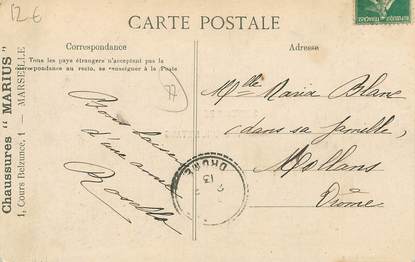 12 €
CARTE POSTALE
Correspondance
Adresse
Tous les pays étrangers n'acceptent pas la
correspondance au recto, se renseigner à la Poste
Chaussures "MARIUS"
1, Cours Belzunce, 1 — MARSEILLE
77
Bon baiser
d'une amie
Rosella
Melle Maria Blanc
(dans sa famille,
Mollans
Drôme
DROME
13